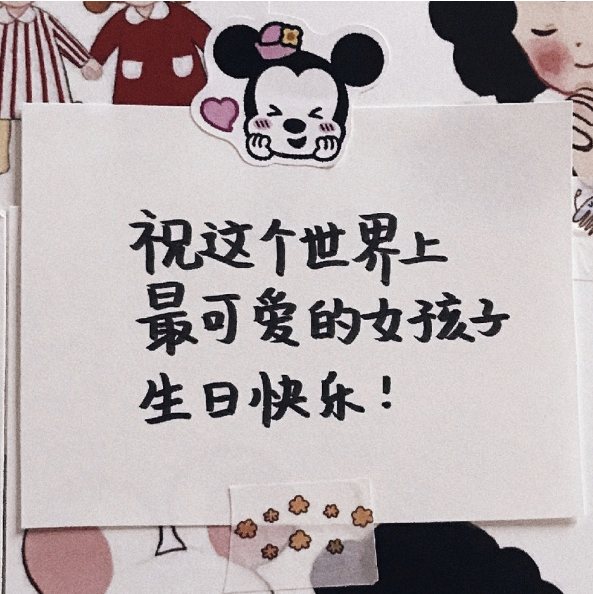 祝这个世界上
最可爱的女孩子
生日快乐！